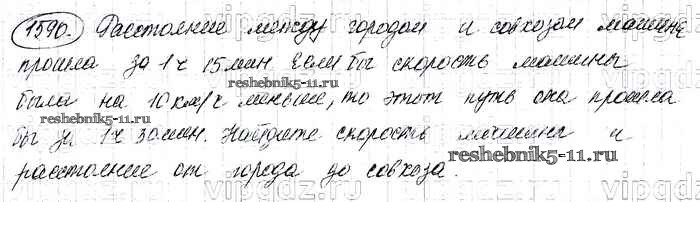 1590. Расстояние между городом и совхозом машина
прошла за 1ч 15мин Если бы скорость машины
reshebnik5-11.ru
была на 10 км/ч меньше, то этот путь она прошла
reshebnik5-11.ru
бы за 1ч 30мин. Найдите скорость машины и
reshebnik5-11.ru
расстояние от города до совхоза.
vipgdz.ru